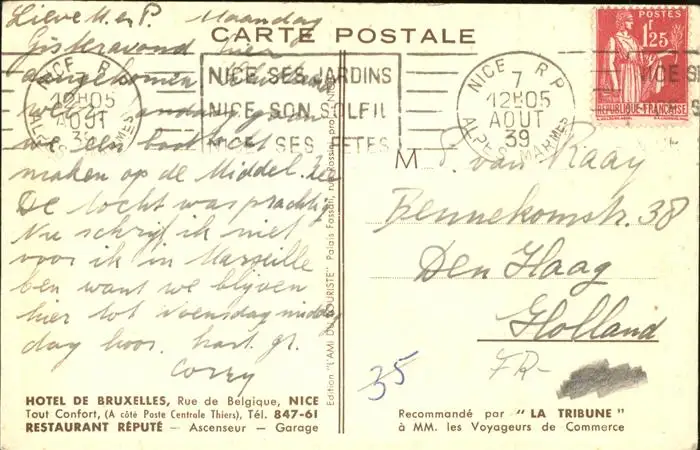 CARTE POSTALE
Lieve M. en P. Maandag
Gisteravond hier
aangekomen
we
we een boottocht
maken op de Middel. Zee
De tocht was prachtig
Nu schrijf ik niet
voor ik in Marseille
ben want we blijven
hier tot Woensdag middag
dag hoor. hart. gr.
Corry
NICE R.P.
12H05
AOUT
39
NICE SES JARDINS
NICE SON SOLEIL
NICE SES FETES
NICE R P
7
12H05
AOUT
39
ALPES MARMES
POSTES
1F25
REPUBLIQUE FRANÇAISE
NICE SE
M
van Raay
Bennekomstr. 38
Den Haag
Holland
FR-
35
Edition "L'AMI DU TOURISTE" Palais Fossati, rue Rossini
HOTEL DE BRUXELLES, Rue de Belgique, NICE
Tout Confort, (A côté Poste Centrale Thiers), Tél. 847-61
RESTAURANT RÉPUTÉ — Ascenseur — Garage
Recommandé par "LA TRIBUNE"
à MM. les Voyageurs de Commerce